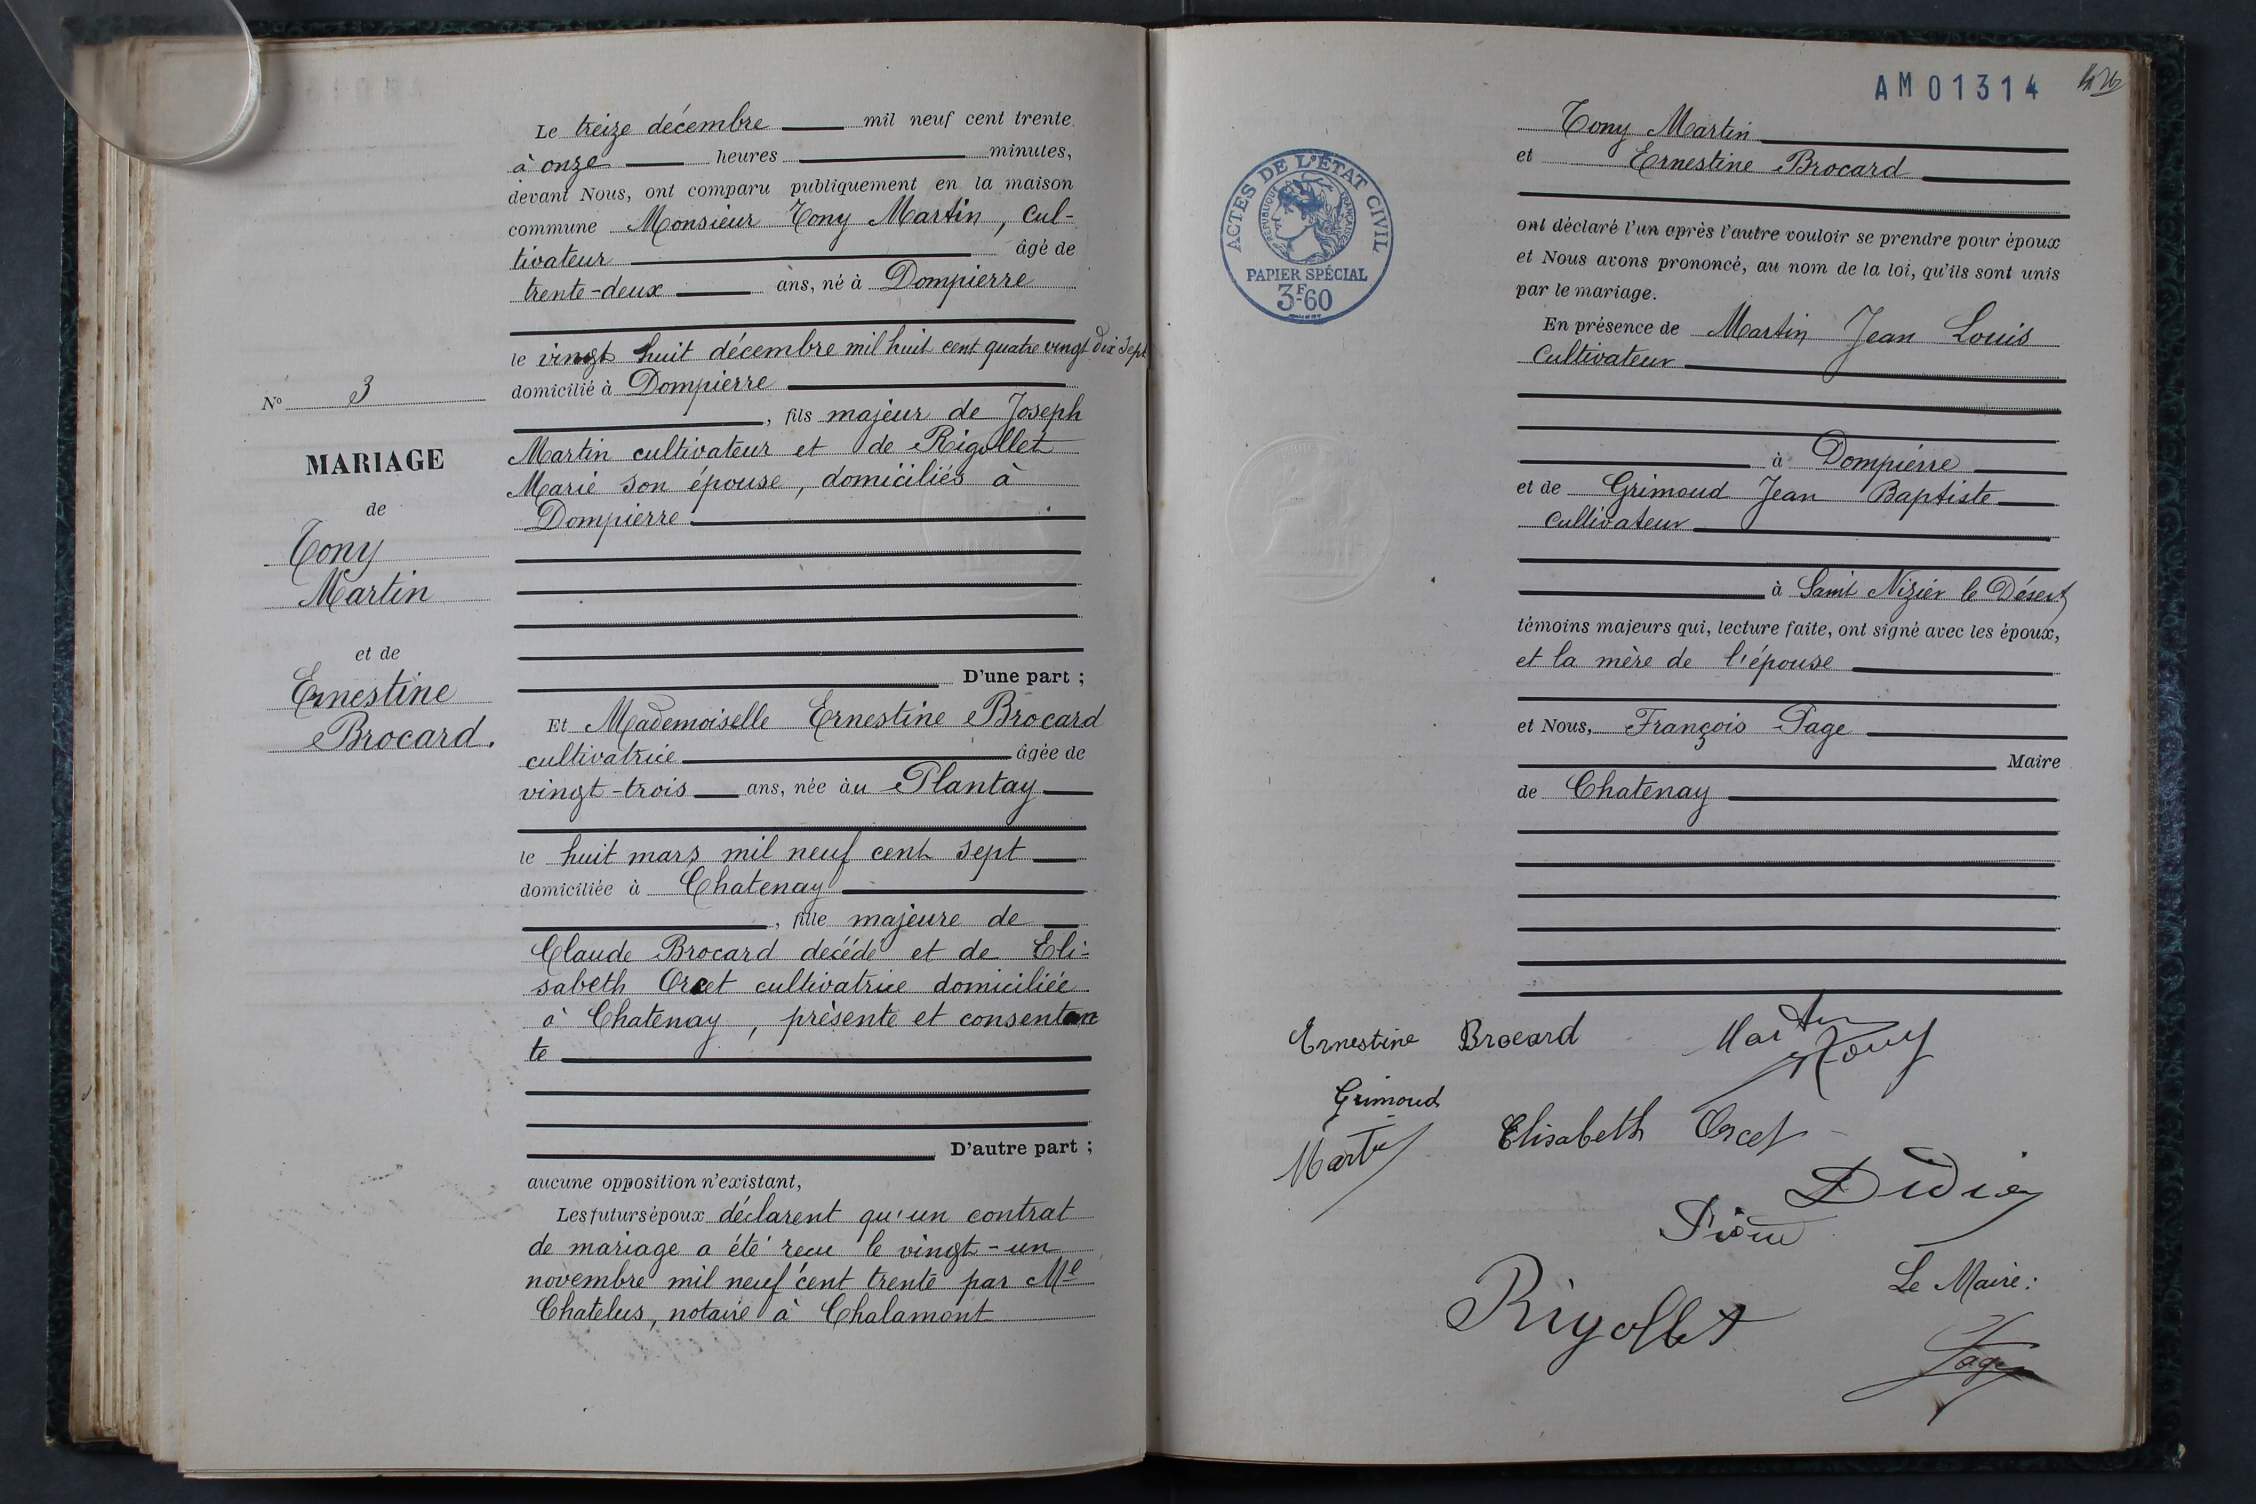 Le treize décembre mil neuf cent trente
à onze heures minutes,
devant Nous, ont comparu publiquement en la maison
commune Monsieur Tony Martin, cul-
tivateur âgé de
trente-deux ans, né à Dompierre
le vingt huit décembre mil huit cent quatre vingt dix sept
domicilié à Dompierre
, fils majeur de Joseph
Martin cultivateur et de Rigollet
Marie son épouse, domiciliés à
Dompierre
D'une part ;
Et Mademoiselle Ernestine Brocard
cultivatrice âgée de
vingt-trois ans, née àu Plantay
le huit mars mil neuf cent sept
domiciliée à Chatenay
, fille majeure de
Claude Brocard décédé et de Eli-
sabeth Orcet cultivatrice domiciliée
à Chatenay, présente et consentan
te
D'autre part ;
aucune opposition n'existant,
Les futurs époux déclarent qu'un contrat
de mariage a été reçu le vingt-un
novembre mil neuf cent trente par Me
Chatelus, notaire à Chalamont
N° 3
MARIAGE
de
Tony
Martin
et de
Ernestine
Brocard.
AM01314
ACTES DE L'ÉTAT CIVIL
RÉPUBLIQUE FRANÇAISE
PAPIER SPÉCIAL
3F60
Tony Martin
et Ernestine Brocard
ont déclaré l'un après l'autre vouloir se prendre pour époux
et Nous avons prononcé, au nom de la loi, qu'ils sont unis
par le mariage.
En présence de Martin Jean Louis
Cultivateur
à Dompierre
et de Grimoud Jean Baptiste
Cultivateur
à Saint Nizier le Désert
témoins majeurs qui, lecture faite, ont signé avec les époux,
et la mère de l'épouse
et Nous, François Page
Maire
de Chatenay
Ernestine Brocard Martin Tony
Grimoud
Elisabeth Orcet
Martin
Didier
Rigollet
Le Maire :
Page